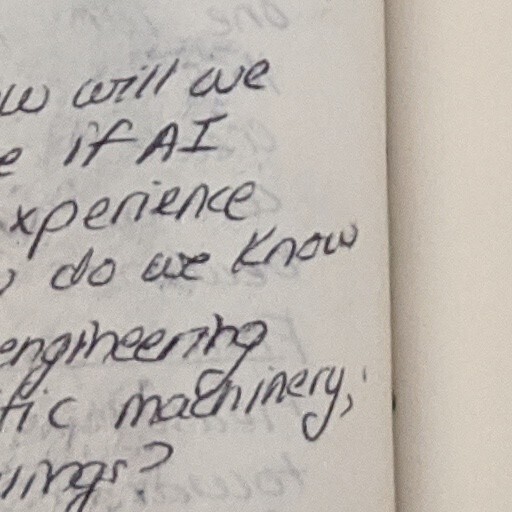 will we
if AI
xperience
do we know
engineering
machinery,